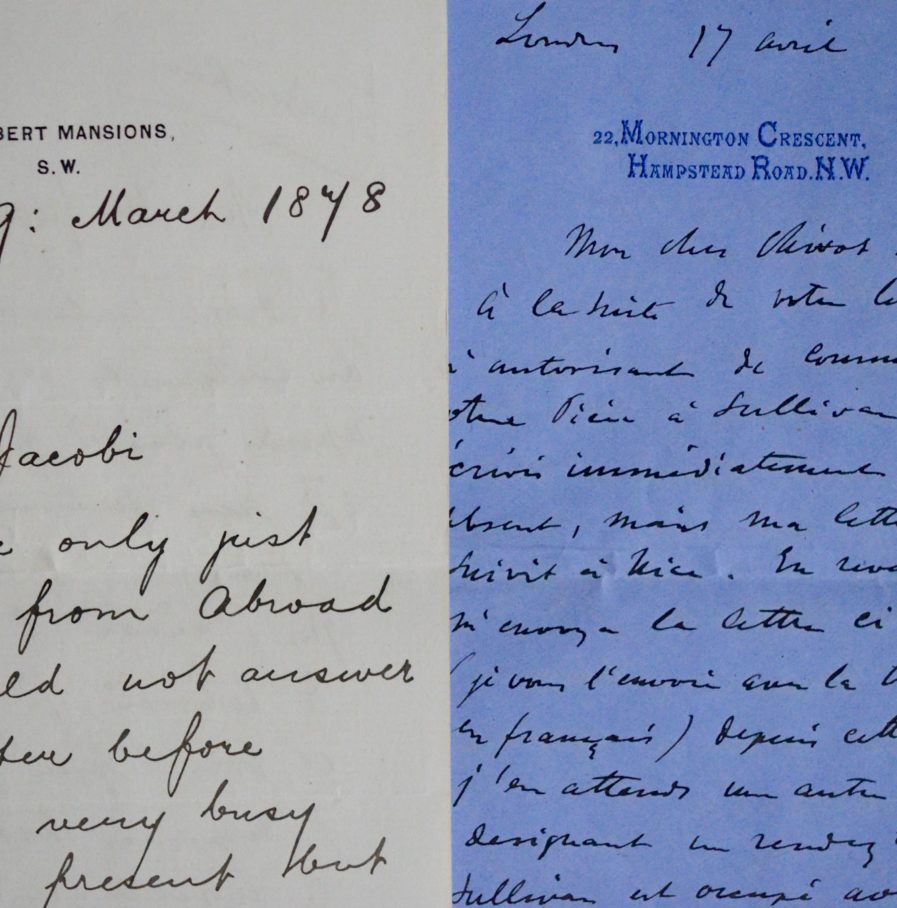 BERT MANSIONS,
S.W.
9: March 1878
Jacobi
only just
from Abroad
ld not answer
ter before
very busy
present but
Londres 17 avril
22, MORNINGTON CRESCENT,
HAMPSTEAD ROAD. N.W.
Mon cher
à la suite de votre le
m'autorisant de commu
otre Pièce à Sullivan
écrivis immédiatement
absent, mais ma lett
suivit à Nice. En reve
m'envoya la lettre ci
(je vous l'envoie avec la t
en français) depuis cett
j'en attends une autre
designant un rendez
Sullivan est occupé av